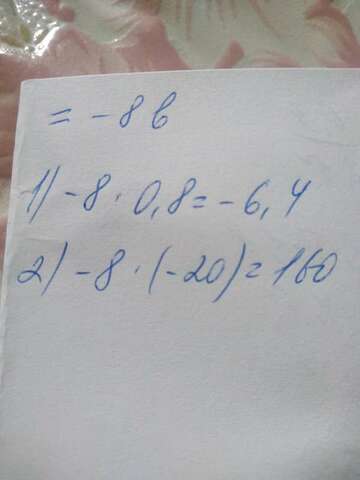 = -8в
1) -8 · 0,8 = -6,4
2) -8 · (-20) = 160